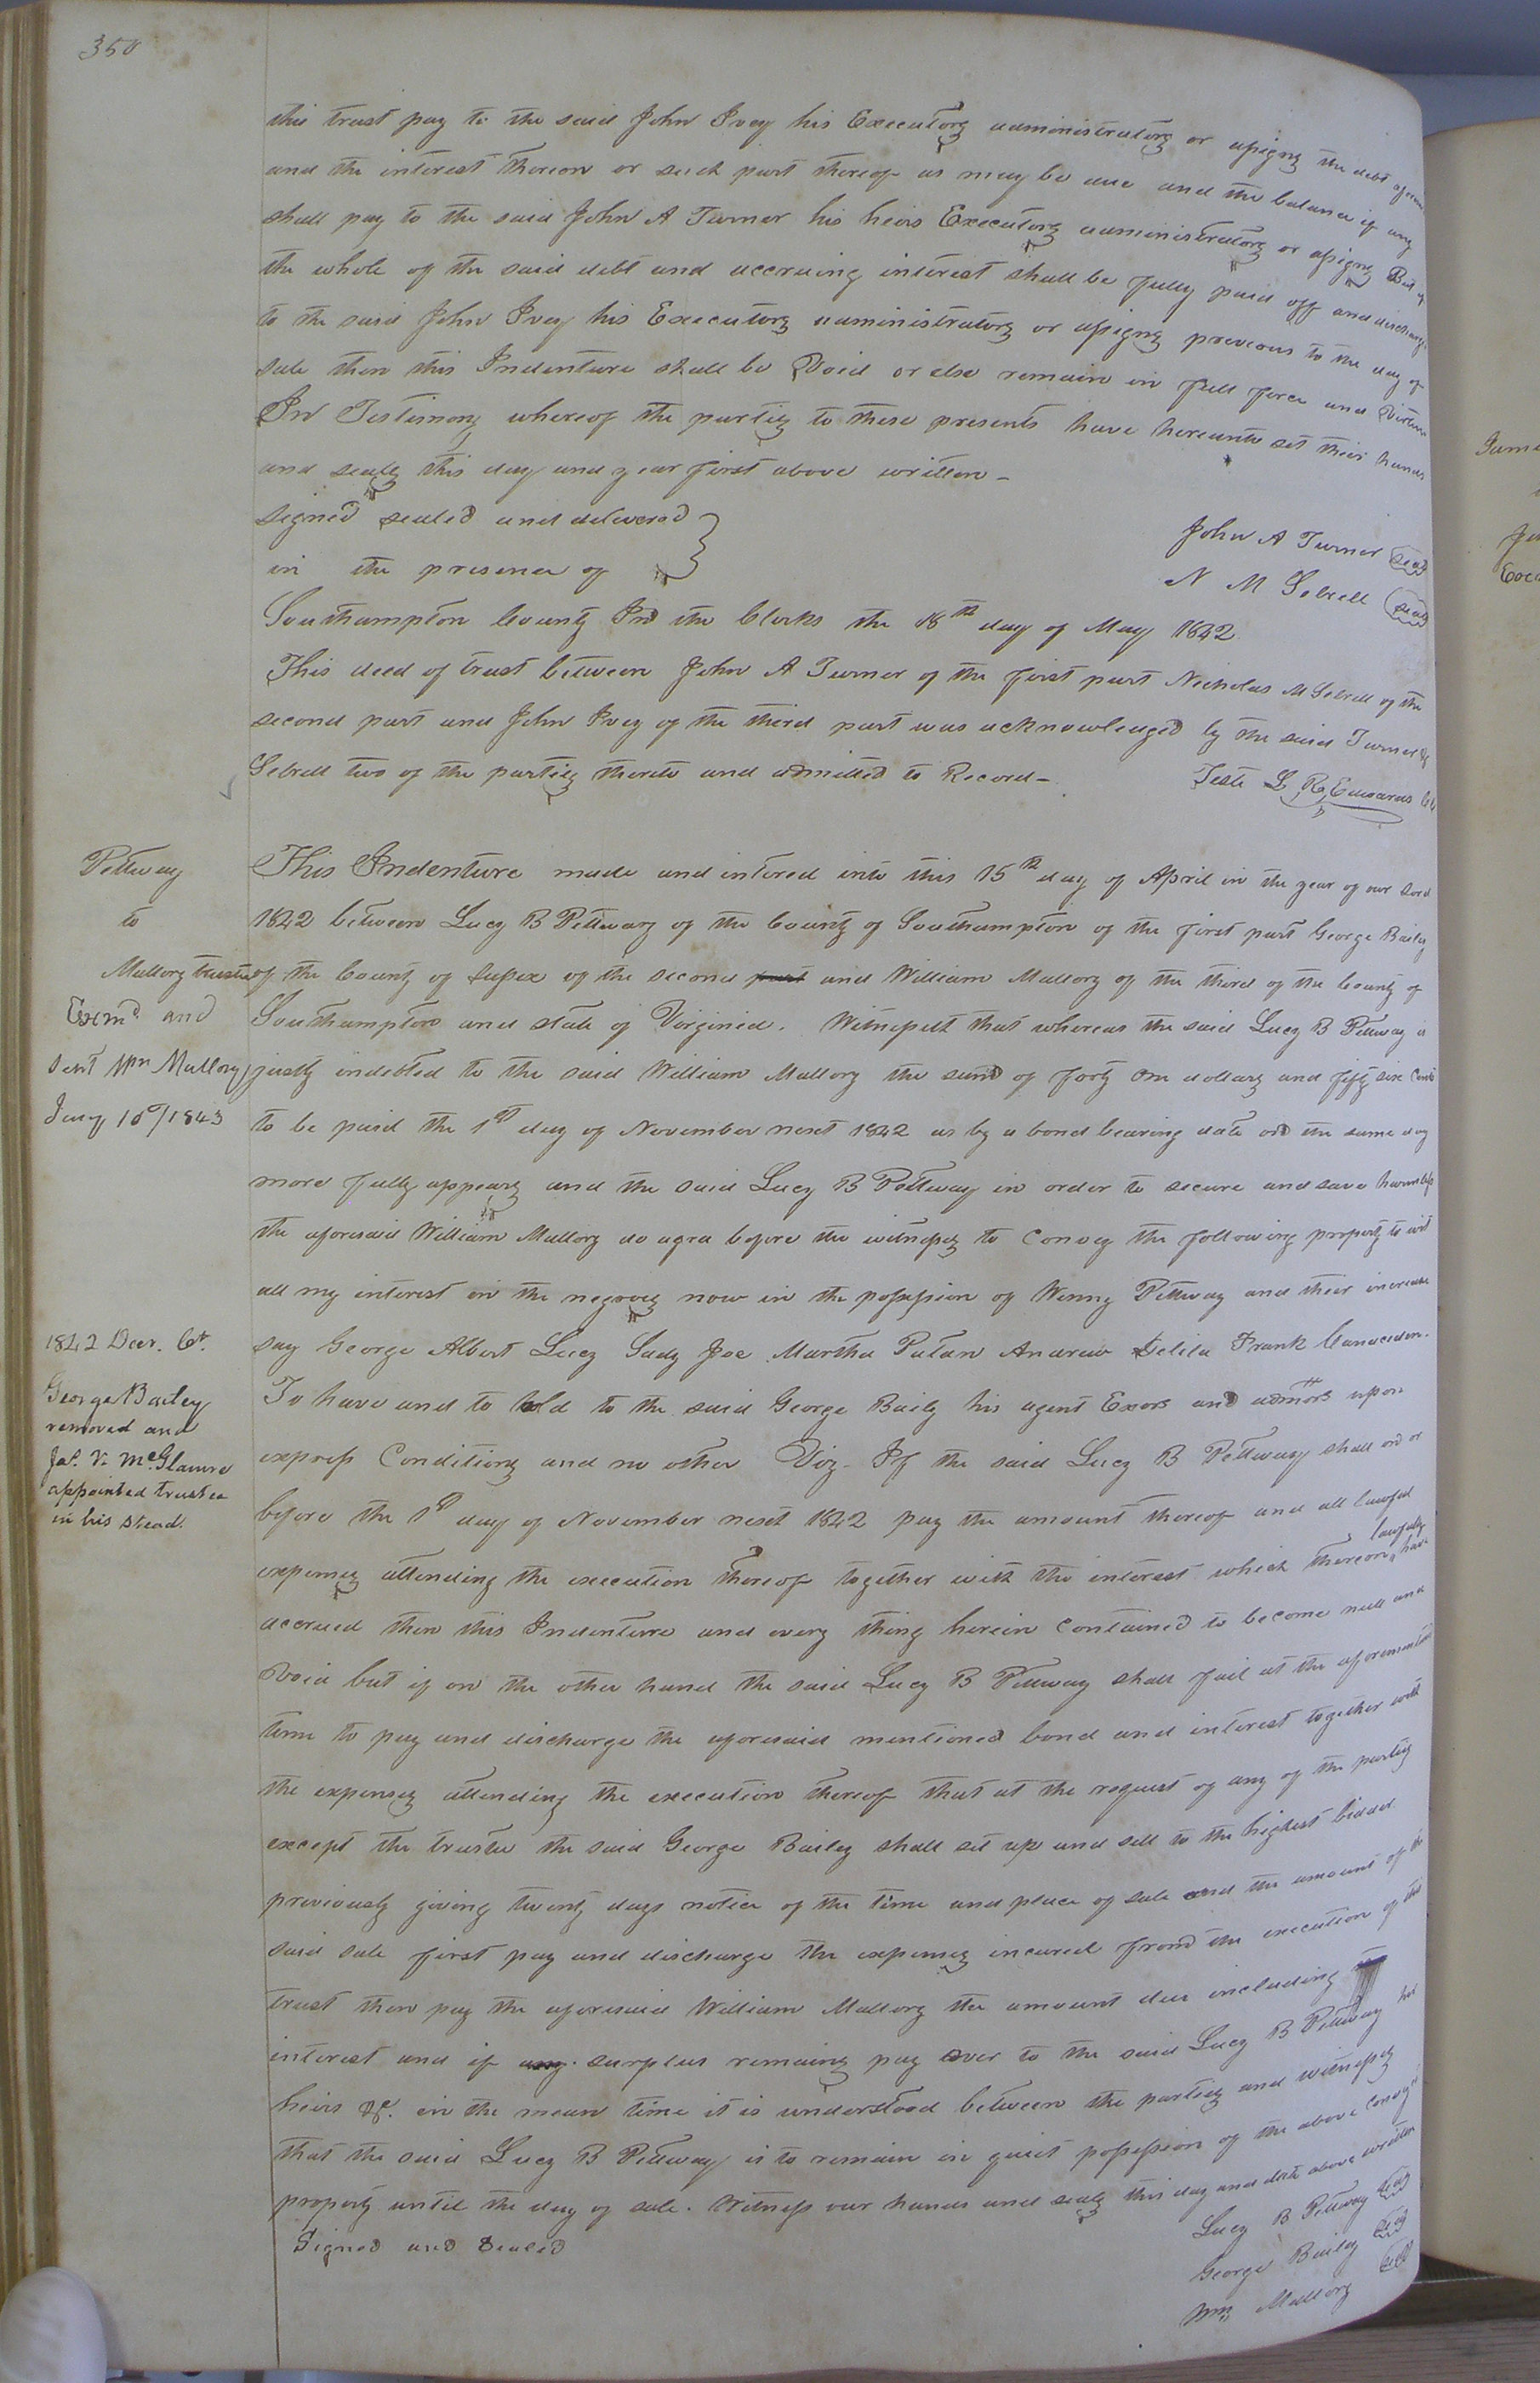 350
this trust pay to the said John Ivey his Executors administrators or assigns the debt
and the interest thereon or such part thereof as may be due and the balance if any
shall pay to the said John A Turner his heirs Executors administrators or assigns But if
the whole of the said debt and accruing interest shall be fully paid off and
to the said John Ivey his Executors administrators or assigns preveous to the day of
sale then this Indenture shall be Void or else remain in full force and Virtue
In Testimony whereof the parties to these presents have hereunto set their hands
and seals this day and year first above written -
Signed sealed and delivered
in the presence of
John A Turner Seal
N M Sebrell Seal
Southampton County In the Clerks the 18th day of May 1842
This deed of trust between John A Turner of the first part Nicholas M Sebrell of the
second part and John Ivey of the third part was acknowledged by the said Turner &
Sebrell two of the parties thereto and admitted to Record -
Teste L R Edwards Clk
Pettway
to
Mallory trustee
Exmd and
sent Wm Mallory
Jany 10th/1843
This Indenture made and intered into this 15th day of April in the year of our Lord
1842 between Lucy B Pettway of the County of Southampton of the first part George Baily
of the County of Sussex of the second part and William Mallory of the third of the County of
Southampton and state of Virginia. Witnesseth that whereas the said Lucy B Pettway is
justly indebted to the said William Mallory the sum of forty one dollars and fifty six Cents
to be paid the 1st day of November next 1842 as by a bond bearing date on the same day
more fully appears and the said Lucy B Pettway in order to secure and save harmless
the aforesaid William Mallory do agree before the witnesses to convey the following property to wit
all my interest in the negroes now in the possession of Winny Pettway and their increase
say George Albert Lucy Sady Joe Martha Patan Andrew Delila Frank
To have and to hold to the said George Baily his agent Exors and admors upon
express Conditions and no other Viz - If the said Lucy B Pettway shall on or
before the 1st day of November next 1842 pay the amount thereof and all lawful
expenses attending the execution thereof together with the interest which thereon lawfully have
accrued then this Indenture and every thing herein Contained to become null and
Void but if on the other hand the said Lucy B Pettway shall fail at the aforementioned
time to pay and discharge the aforesaid mentioned bond and interest together with
the expenses attending the execution thereof that at the request of any of the parties
except the trustee the said George Bailey shall set up and sell to the highest bidder
previously giving twenty days notice of the time and place of sale and the amount of the
said sale first pay and discharge the expenses incured from the execution of this
trust then pay the aforesaid William Mallory the amount due including
interest and if any surplus remains pay over to the said Lucy B Pettway her
heirs &c. in the mean time it is understood between the parties and witnesses
that the said Lucy B Pettway is to remain in quiet possession of the above
property until the day of sale. Witness our hands and seals this day and date above written
Signed and Sealed
Lucy B Pettway Seal
George Bailey Seal
Wm Mallory Seal
1842 Decr. 6th.
George Bailey
removed and
Jas. V. McGlamre
appointed trustee
in his stead.